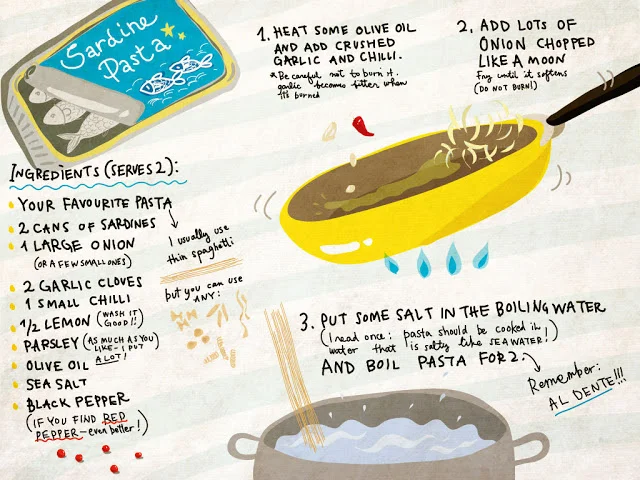 Sardine
Pasta
INGREDIENTS (SERVES 2):
YOUR FAVOURITE PASTA
2 CANS OF SARDINES
1 LARGE ONION
(OR A FEW SMALL ONES)
2 GARLIC CLOVES
1 SMALL CHILLI
1/2 LEMON (WASH IT
GOOD!!)
PARSLEY (AS MUCH AS YOU
LIKE - I PUT
A LOT!)
OLIVE OIL
SEA SALT
BLACK PEPPER
(IF YOU FIND RED
PEPPER - even better!)
I usually use
thin spaghetti
but you can use
ANY:
1. HEAT SOME OLIVE OIL
AND ADD CRUSHED
GARLIC AND CHILLI.
* Be careful not to burn it.
garlic becomes bitter when
it's burned
2. ADD LOTS OF
ONION CHOPPED
LIKE A MOON
Fry until it softens
(DO NOT BURN!)
3. PUT SOME SALT IN THE BOILING WATER
(I read once: pasta should be cooked in
water that is salty like SEA WATER!)
AND BOIL PASTA FOR 2.
Remember:
AL DENTE!!!